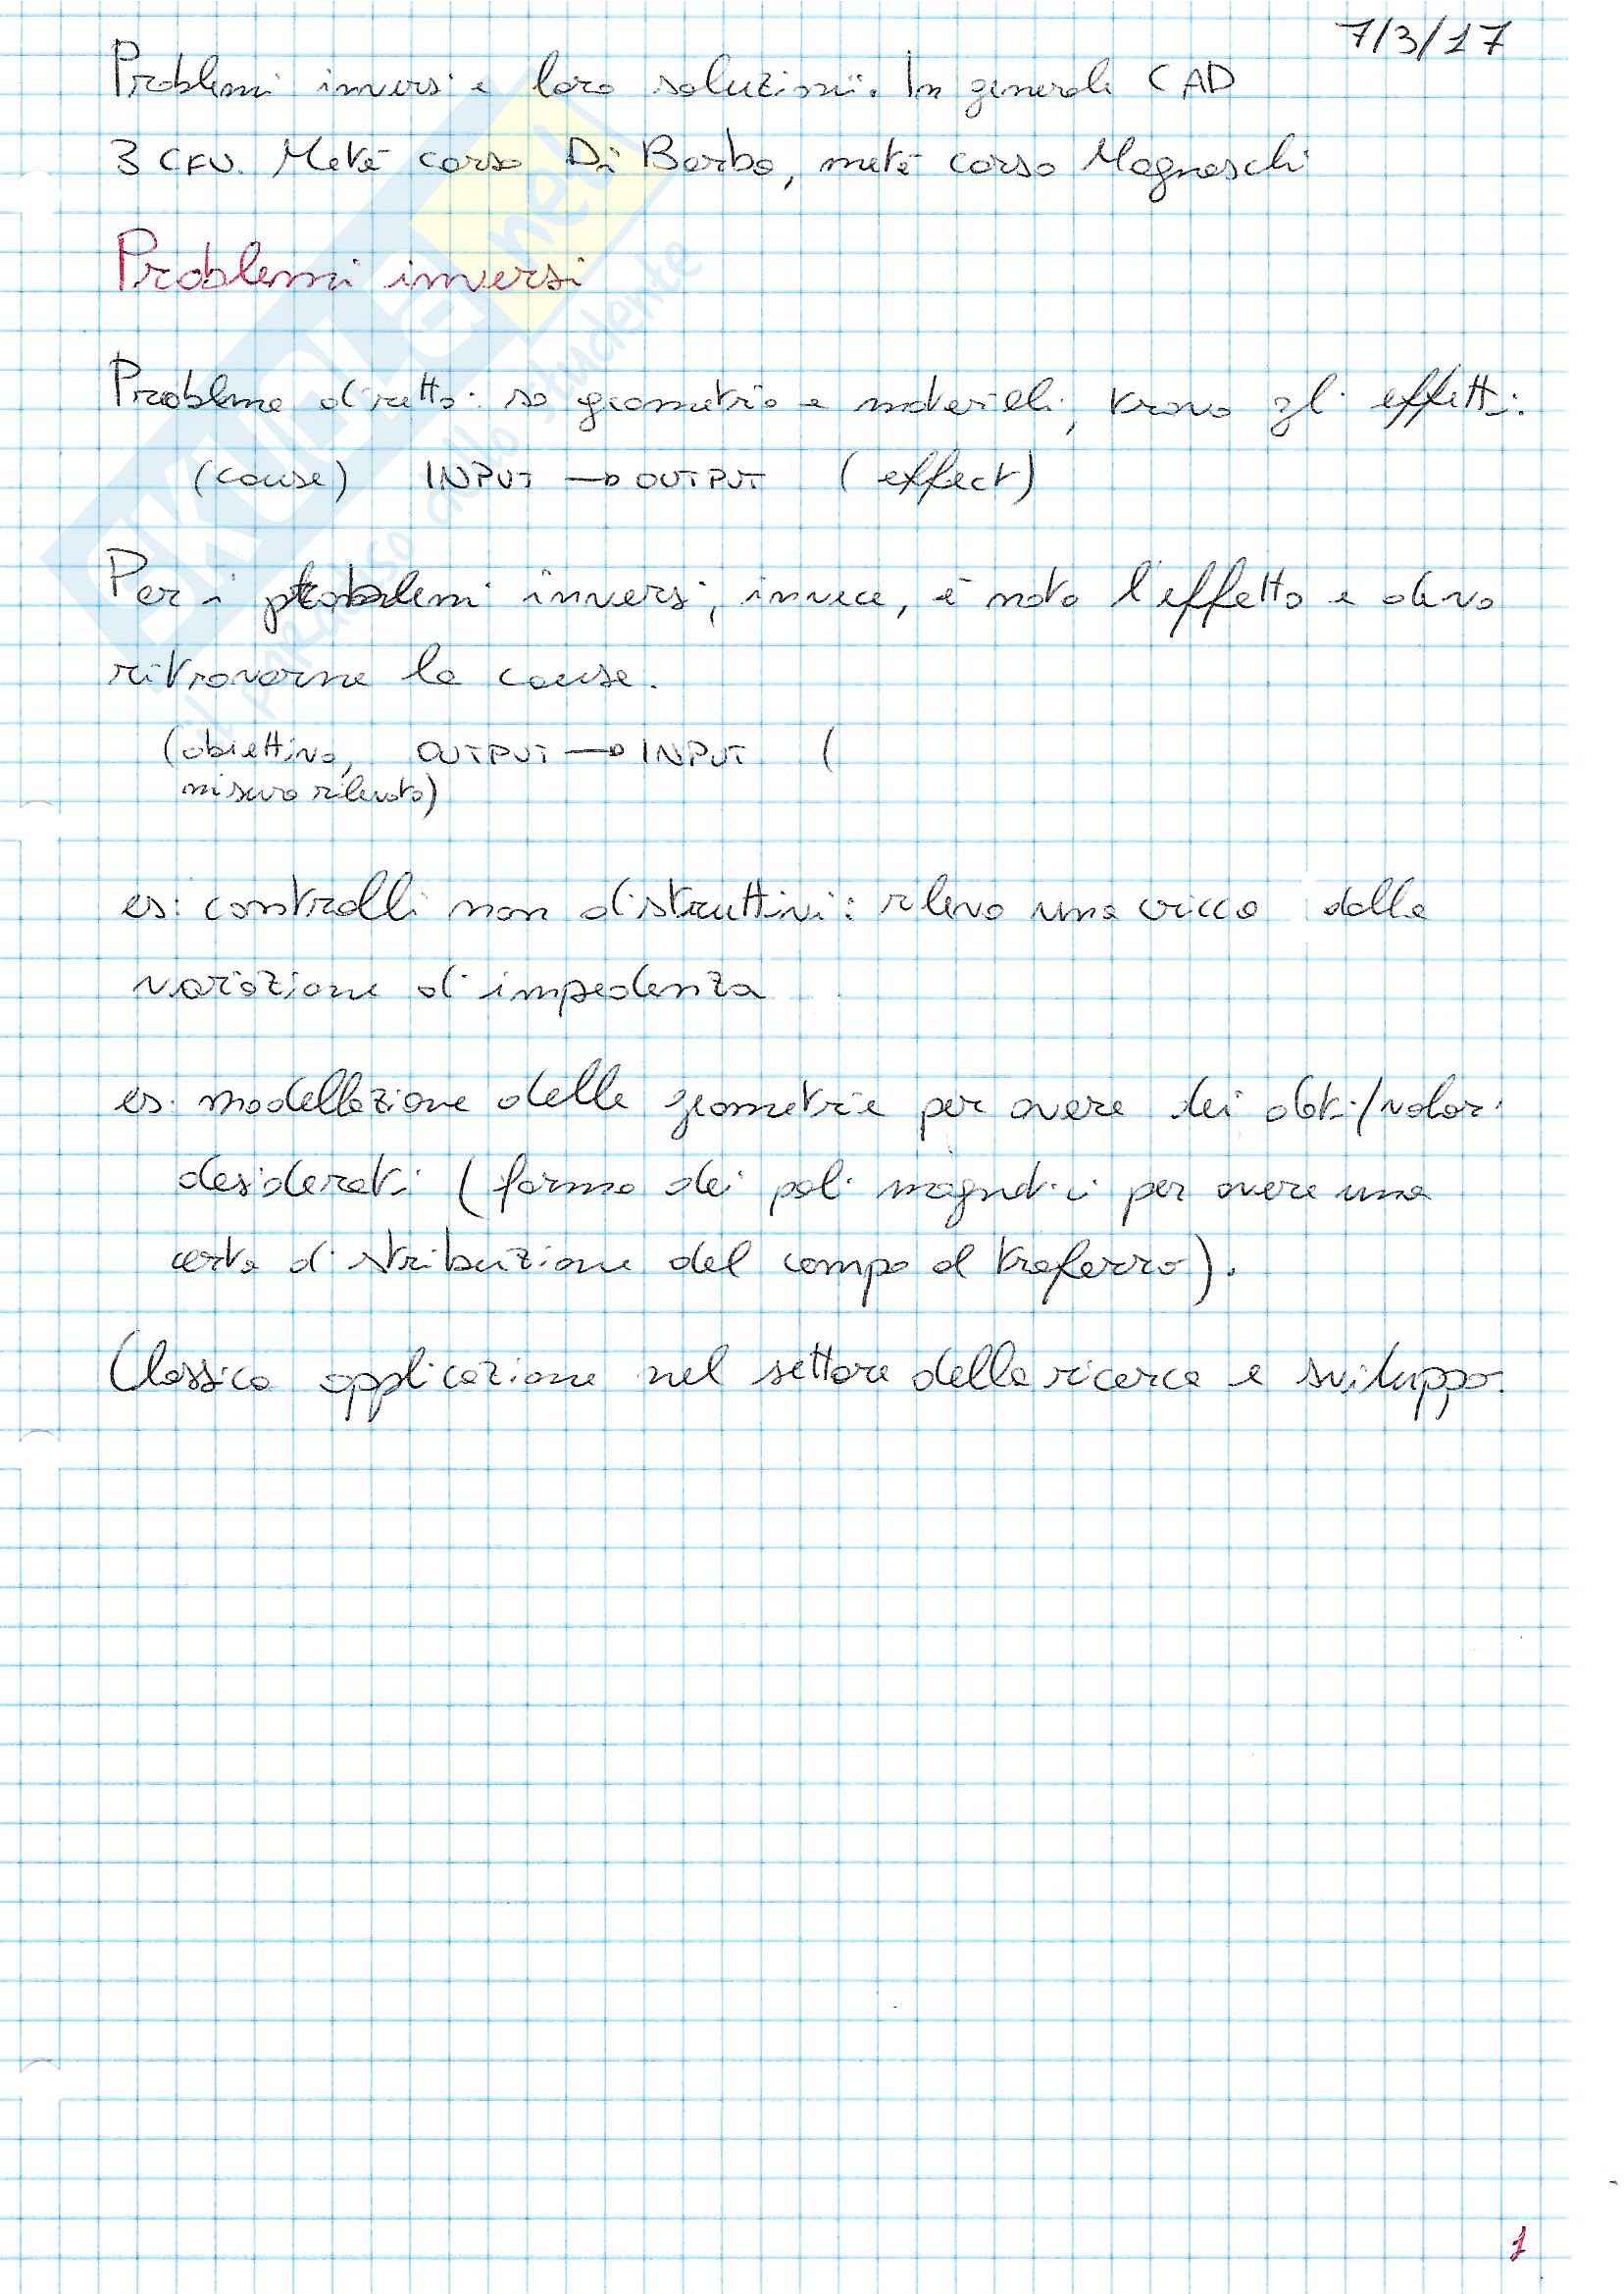 7/3/17
Problemi inversi e loro soluzioni. In generale CAD
3 CFU. Metà corso Di Barba, metà corso Magnaschi
Problemi inversi
Problema diretto: so geometria e materiali, trovo gli effetti:
(cause) INPUT → OUTPUT (effect)
Per i problemi inversi, invece, è noto l'effetto e devo
ritrovarne la causa.
(obiettivo, OUTPUT → INPUT (
misura rilevata)
es: controlli non distruttivi: rilevo una cricca dalla
variazione di impedenza
es: modellazione delle geometrie per avere dei dati/valori
desiderati (forma dei poli magnetici per avere una
certa distribuzione del campo al traferro).
Classica applicazione nel settore della ricerca e sviluppo.
1
SKUOLA.net
il paradiso dello studente